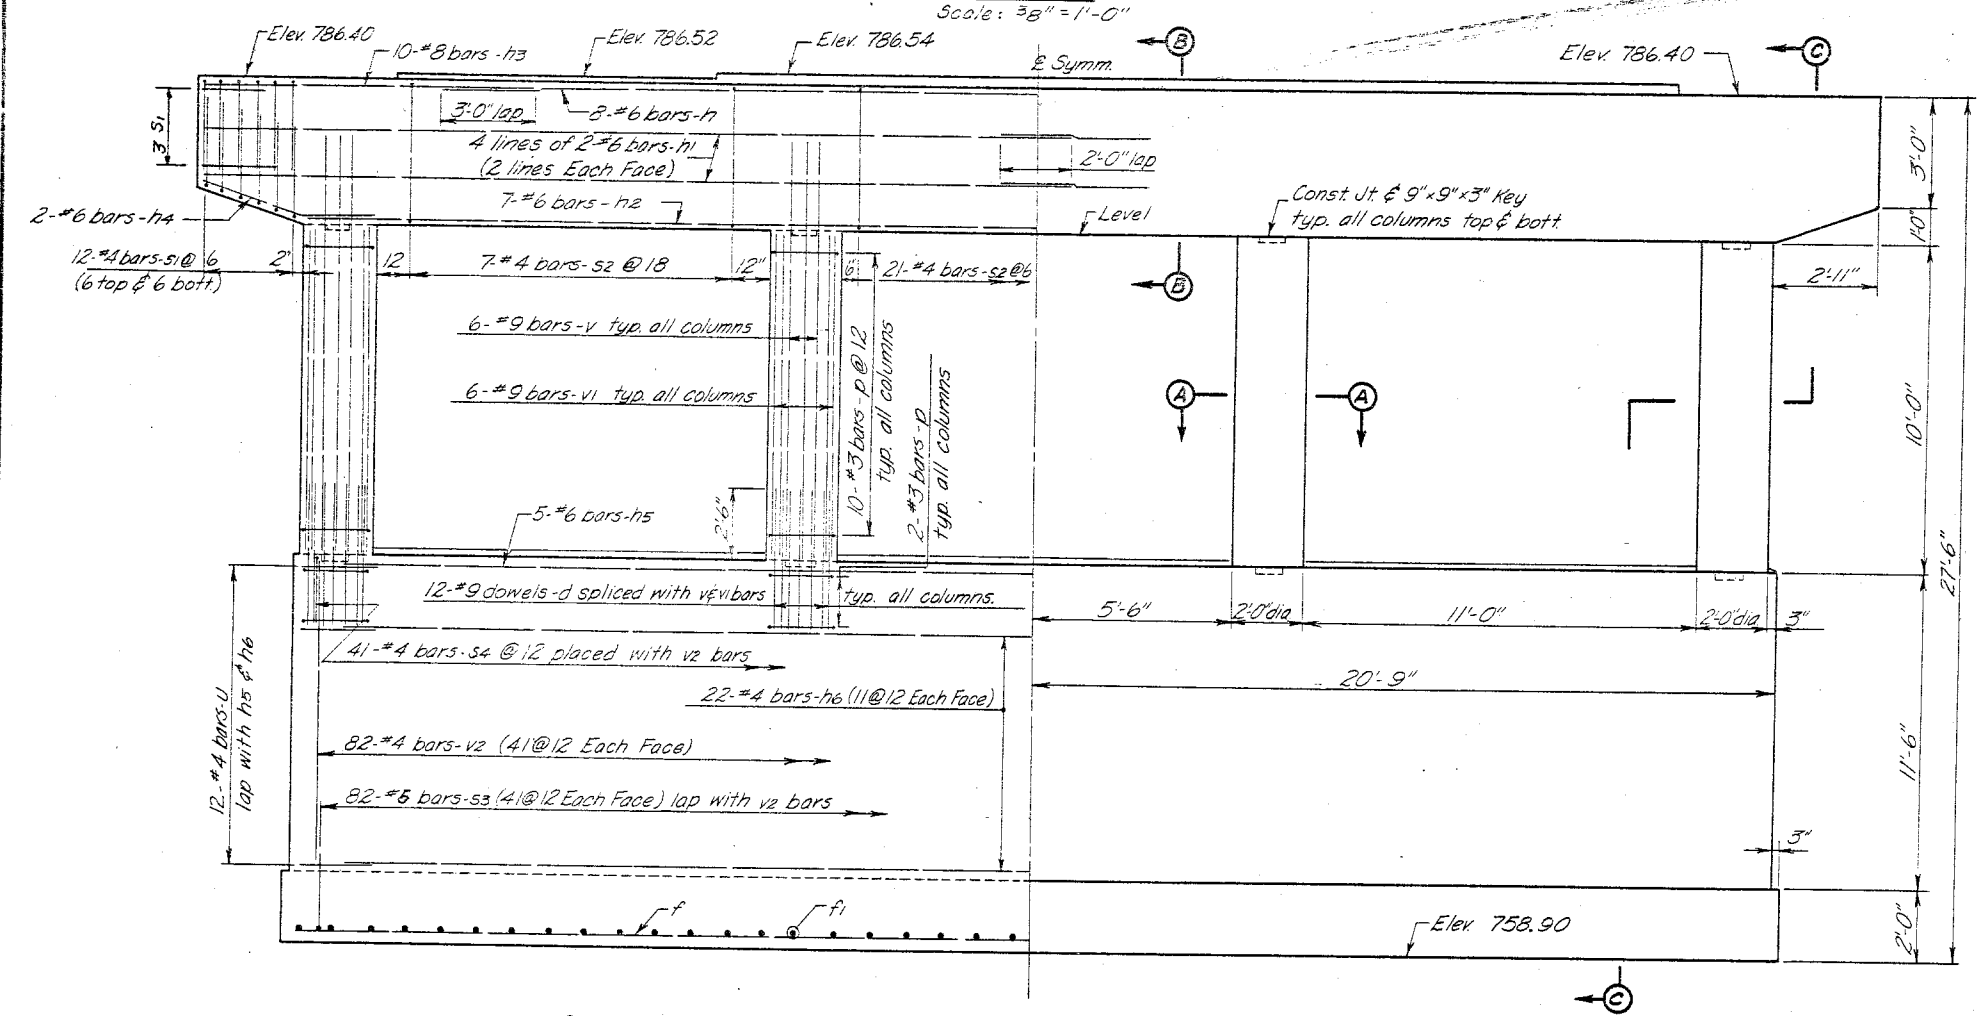 Scale: 3/8" = 1'-0"
Elev. 786.40
10-#8 bars-h3
Elev. 786.52
Elev. 786.54
B
℄ Symm.
Elev. 786.40
C
3 S1
3'-0" lap
8-#6 bars-h
4 lines of 2-#6 bars-h1
(2 lines Each Face)
2'-0" lap
3'-0"
2-#6 bars-h4
7-#6 bars-h2
Level
Const. Jt. & 9"x9"x3" Key
typ. all columns top & bott.
1'-0"
12-#4 bars-s1@ 6
(6 top & 6 bott.)
2"
12
7-#4 bars-s2 @ 18
12"
6"
21-#4 bars-s2@6
B
2'-11"
6-#9 bars-v typ. all columns
6-#9 bars-v1 typ. all columns
10-#3 bars-p @ 12
typ. all columns
2-#3 bars-p
typ. all columns
A
A
10'-0"
27'-6"
5-#6 bars-h5
2'-6"
12-#9 dowels-d spliced with v&v1bars
typ. all columns.
5'-6"
2'-0"dia
11'-0"
2'-0"dia
3"
41-#4 bars-s4 @ 12 placed with v2 bars
22-#4 bars-h6 (11@12 Each Face)
20'-9"
12-#4 bars-u
lap with h5 & h6
82-#4 bars-v2 (41@12 Each Face)
82-#5 bars-s3 (41@12 Each Face) lap with v2 bars
11'-6"
3"
f
f1
Elev. 758.90
2'-0"
C